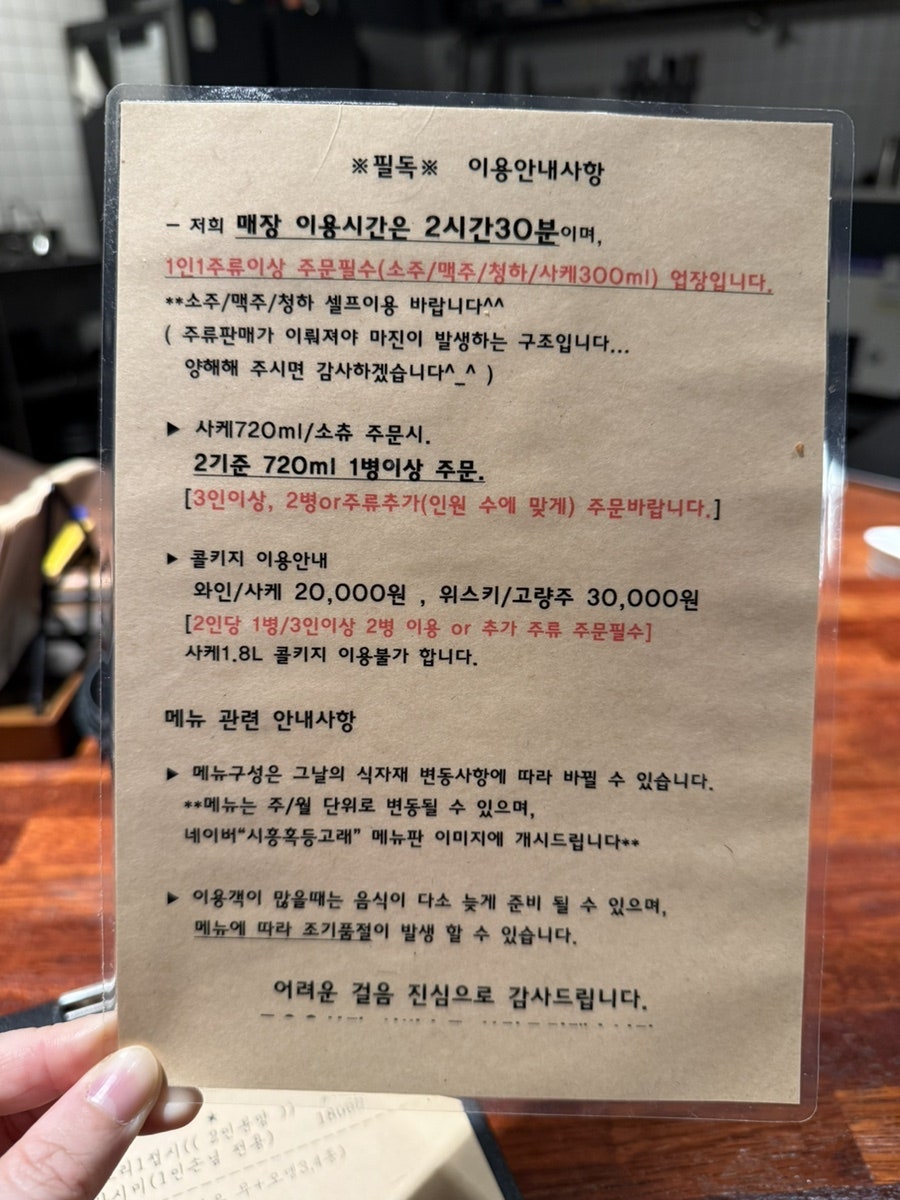 ※필독※ 이용안내사항
- 저희 매장 이용시간은 2시간30분이며,
1인1주류이상 주문필수(소주/맥주/청하/사케300ml) 업장입니다.
**소주/맥주/청하 셀프이용 바랍니다^^
( 주류판매가 이뤄져야 마진이 발생하는 구조입니다...
양해해 주시면 감사하겠습니다^_^ )
▶ 사케720ml/소츄 주문시.
2기준 720ml 1병이상 주문.
[3인이상, 2병or주류추가(인원 수에 맞게) 주문바랍니다.]
▶ 콜키지 이용안내
와인/사케 20,000원 , 위스키/고량주 30,000원
[2인당 1병/3인이상 2병 이용 or 추가 주류 주문필수]
사케1.8L 콜키지 이용불가 합니다.
메뉴 관련 안내사항
▶ 메뉴구성은 그날의 식자재 변동사항에 따라 바뀔 수 있습니다.
**메뉴는 주/월 단위로 변동될 수 있으며,
네이버"시흥혹등고래" 메뉴판 이미지에 개시드립니다**
▶ 이용객이 많을때는 음식이 다소 늦게 준비 될 수 있으며,
메뉴에 따라 조기품절이 발생 할 수 있습니다.
어려운 걸음 진심으로 감사드립니다.